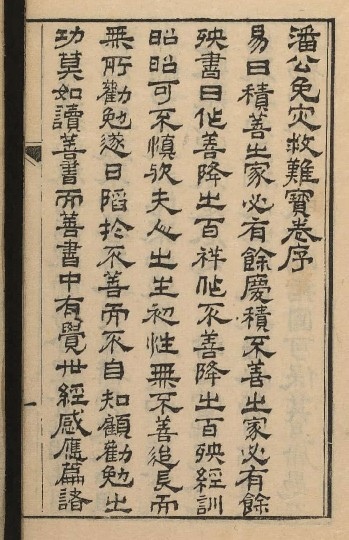 潘公免灾救難寶卷序
易曰積善之家必有餘慶積不善之家必有餘
殃書曰作善降之百祥作不善降之百殃經訓
昭昭可不慎欤夫人之生初性無不善迨長而
無所勸勉遂日陷於不善而不自知顧勸勉之
功莫如讀善書而善書中有覺世經感應篇諸
一